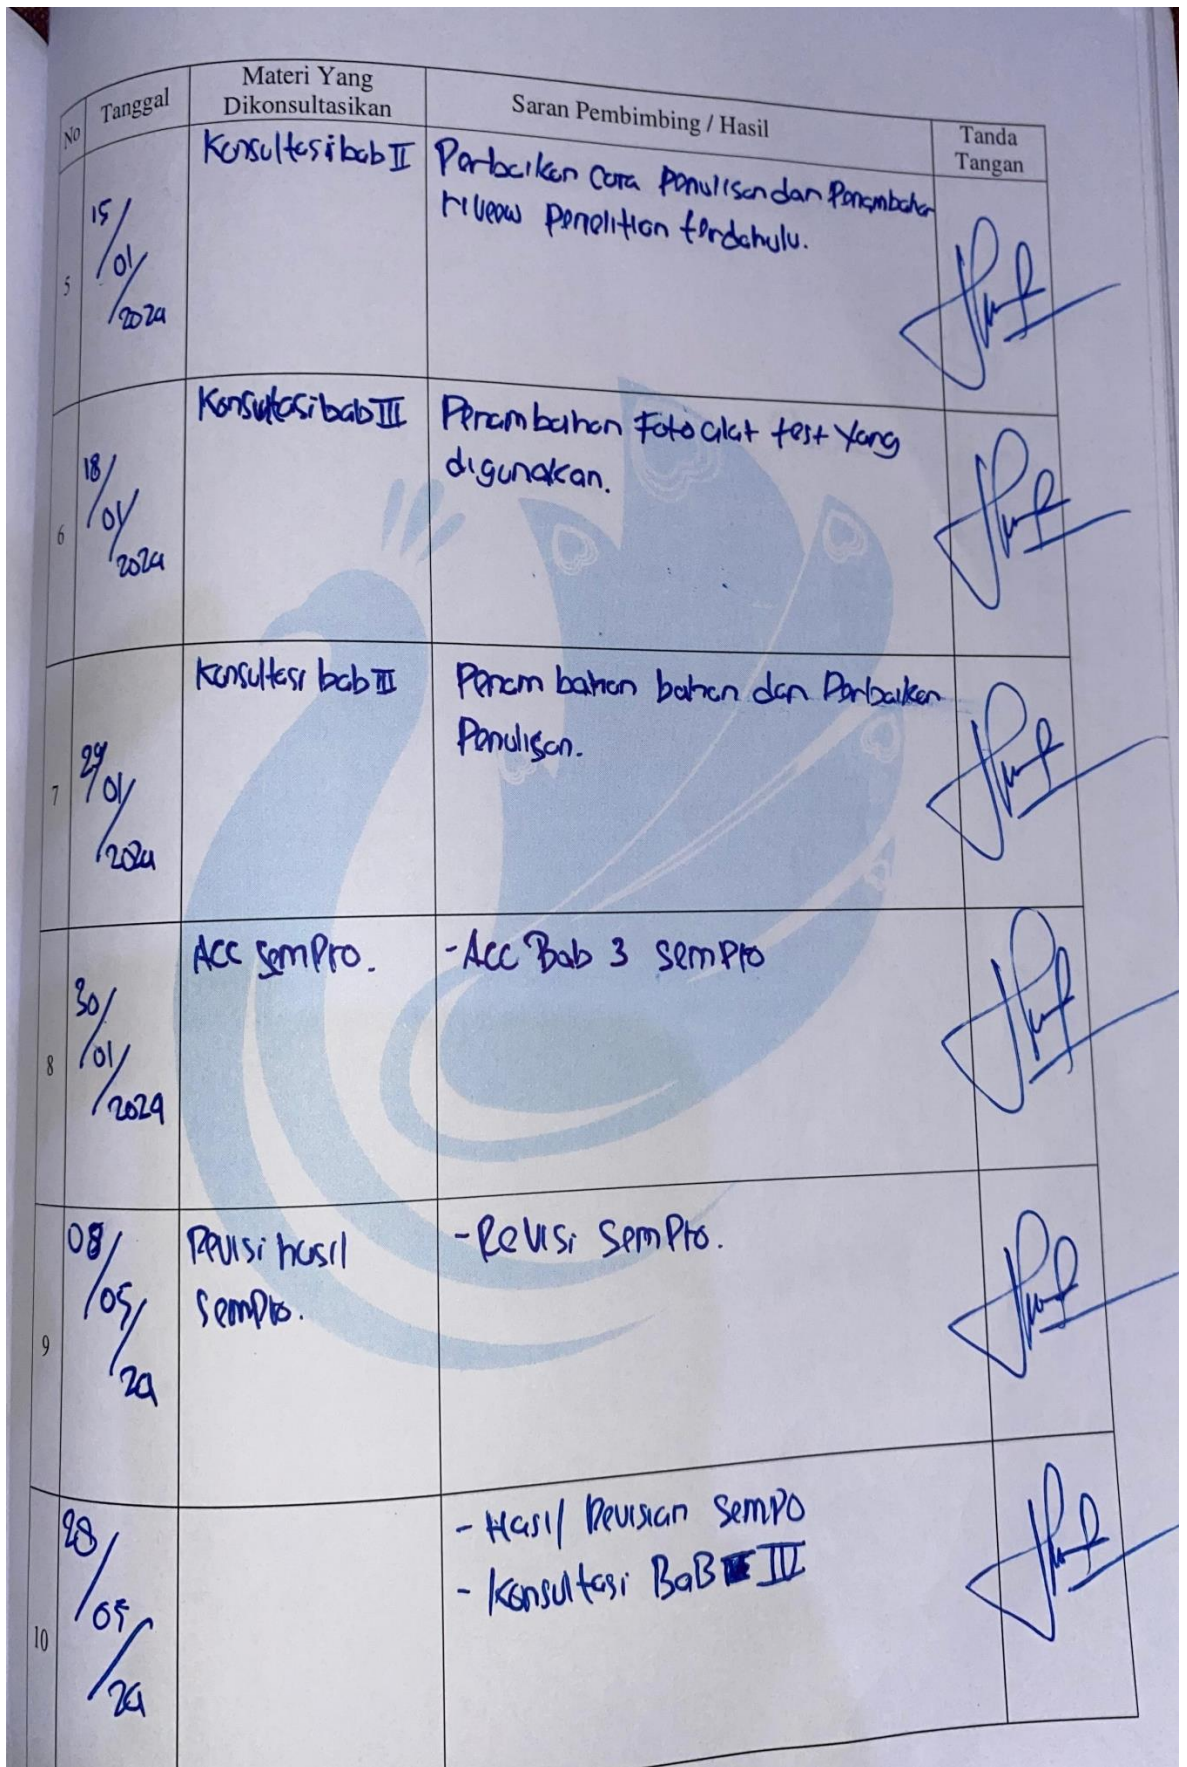 No
Tanggal
Materi Yang
Dikonsultasikan
Saran Pembimbing / Hasil
Tanda
Tangan
5
15/
/01/
/2024
Konsultasi bab II
Perbaikan cara penulisan dan Penambahan
riveew penelitian terdahulu.
6
18/
/01/
/2024
Konsultasi bab III
Penambahan Foto alat test yang
digunakan.
7
29/
/01/
/2024
Konsultasi bab III
Penambahan bahan dan Perbaikan
Penulisan.
8
30/
/01/
/2024
Acc sempro.
-Acc Bab 3 sempro
9
08/
/05/
/24
Revisi hasil
sempro.
-Revisi Sempro.
10
/05/
/24
- Hasil Revisian sempo
- Konsultasi BaB IV